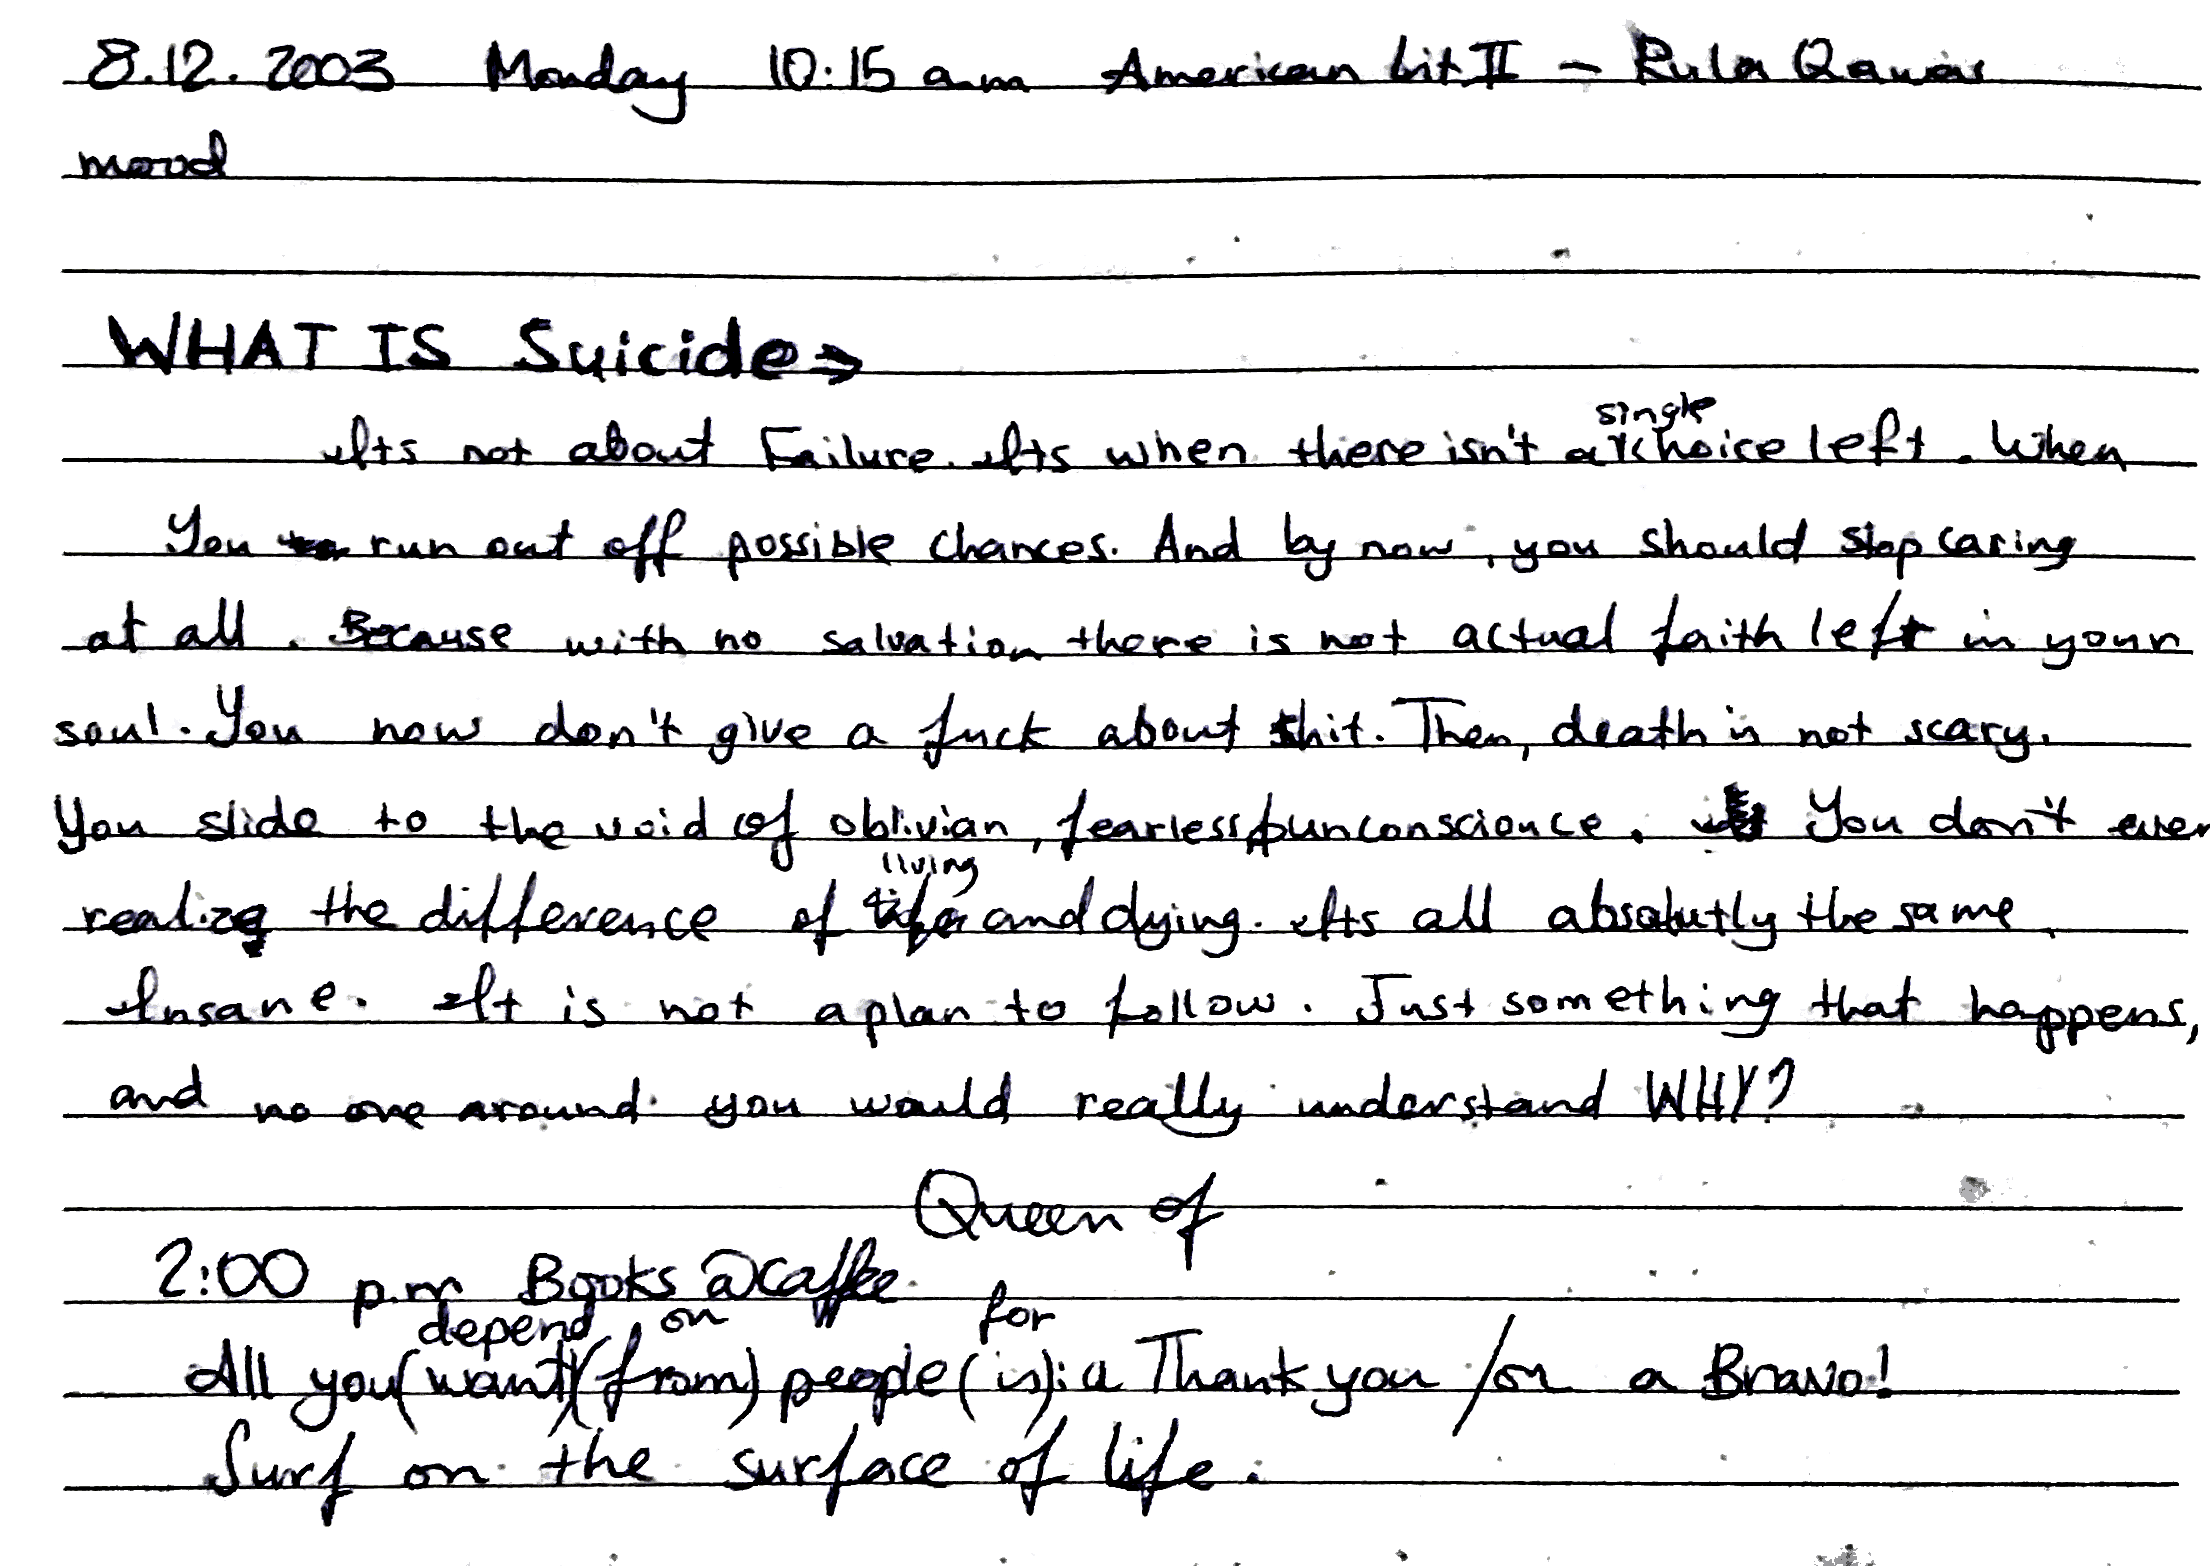 8.12.2003 Monday 10:15 a.m American Lit II - Rula Qawas
mood
WHAT IS Suicide →
Its not about Failure. Its when there isn't a single choice left. When
You run out off possible chances. And by now, you should stop caring
at all. Because with no salvation there is not actual faith left in your
soul. You now don't give a fuck about shit. Then, death is not scary.
You slide to the void of oblivian, fearless, unconscionce. You don't even
realize the difference of living and dying. Its all absolutly the same.
Insane. It is not a plan to follow. Just something that happens,
and no one around you would really understand WHY?
Queen of
2:00 p.m Books @ Caffee
depend on for
All you (want) (from) people (is): a Thank you / or a Bravo!
Surf on the surface of life.